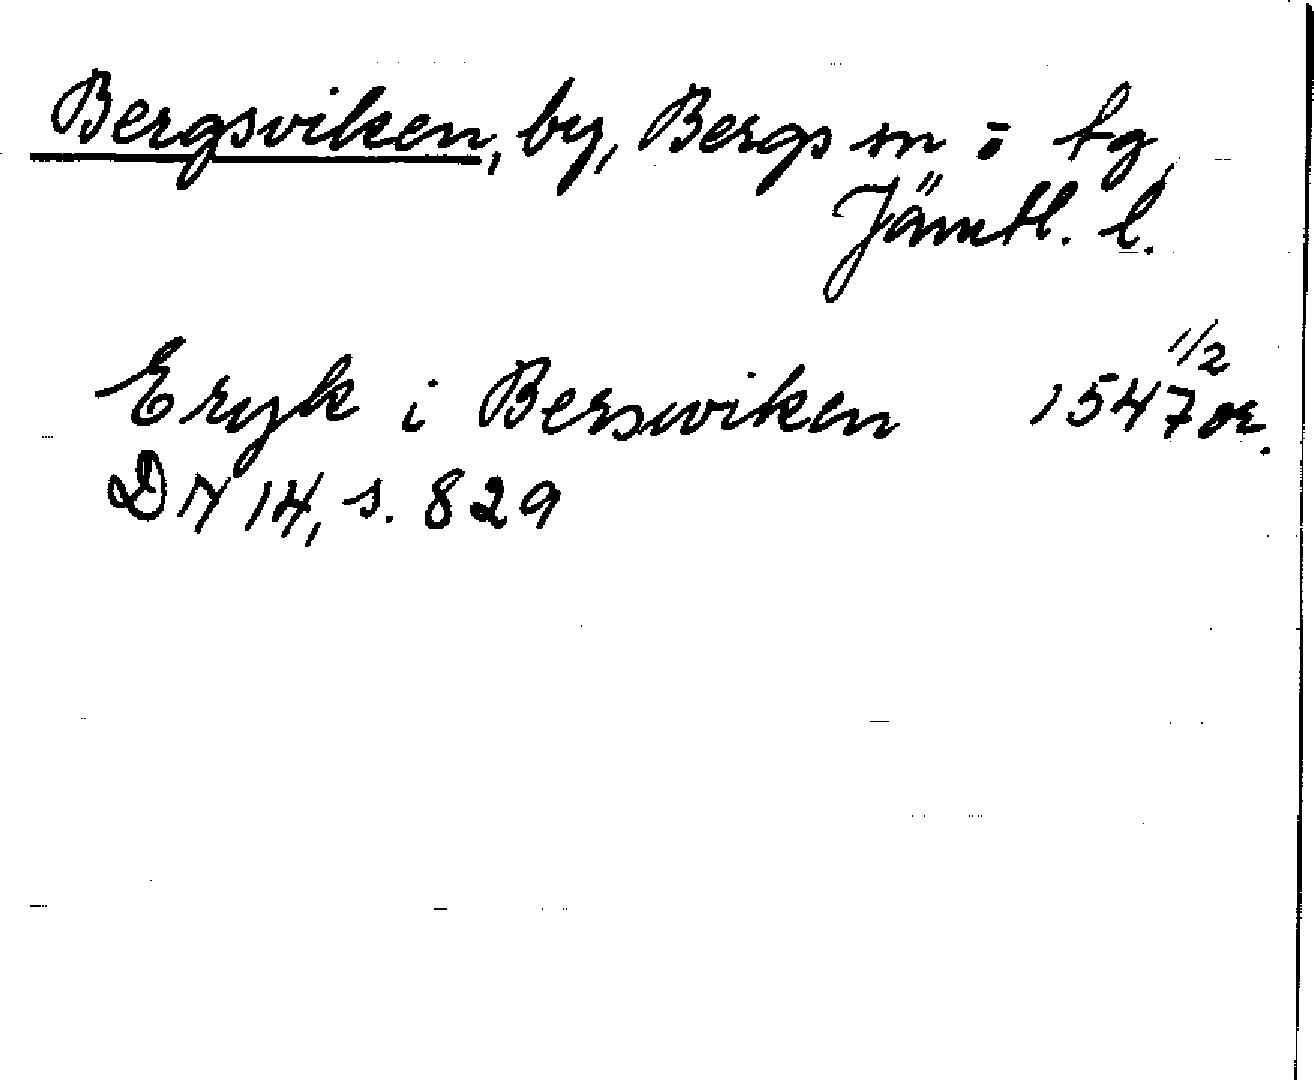 Bergsviken, by, Bergs sn o tg,
Jämtl. l.
Eryk i Berswiken 1547 11/2 or.
DN 14, s. 829